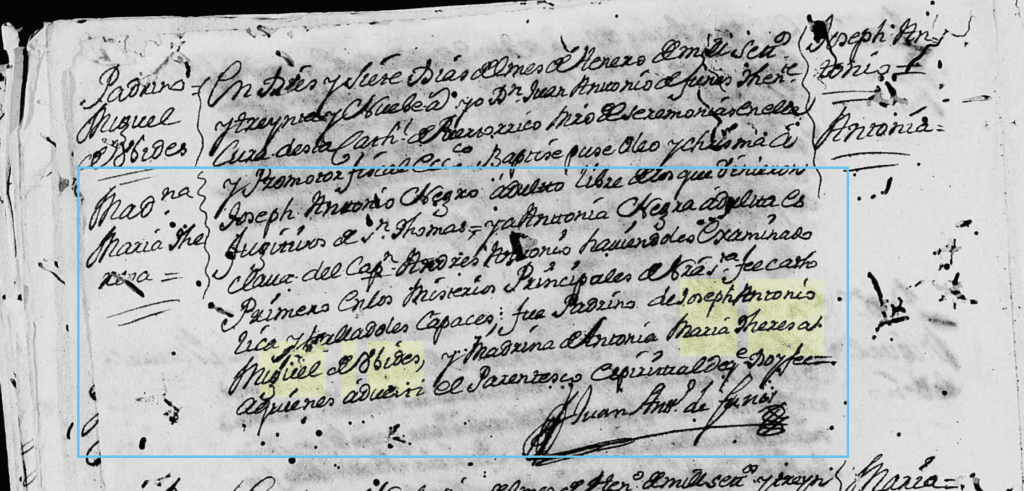 Padrino
Miguel
de Vbides
Mad.na
Maria The
resa =
En Dies y siete Dias del mes de Henero de mill sett.os
y treynta y Nuebe a.s yo D.n Juan Antonio de funes The.te
Cura desta Cath.l de Puertorrico Mro de seremonias en ella
y Promotor fiscal Ecc.co Baptise puse oleo y chrisma a
Joseph Antonio Negro adulto libre de los que vinieron
fugitivos de S.n Thomas = y a Antonia Negra adulta es
clava del Cap.n Andres Antonio haviendoles Examinado
Primero en los Misterios Principales de Nrã S.ta fee catho
lica y halladoles Capaces: fue Padrino de Joseph Antonio
Miguel de Vbides, y Madrina de Antonia Maria Theresa
aquienes adverti el Parentesco Espiritual de q.e Doy fee =
Juan Ant.o de funes
Joseph An-
tonio =
Antonia =
mes de Hen.o de mill sett.os y treyn
Maria =